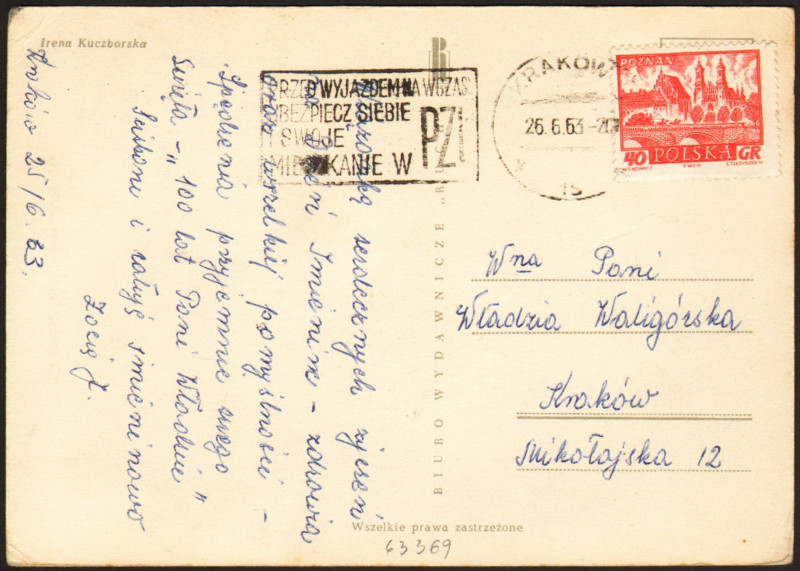 Irena Kuczborska
PRZED WYJAZDEM NA WCZASY
UBEZPIECZ SIEBIE
I SWOJE
MIESZKANIE W PZU
KRAKÓW
26.6.63
15
POZNAŃ
40 POLSKA GR
Kraków 25/6.63.
serdecznych życzeń
Dzień Imienin - zdrowia
oraz wszelkiej pomyślności -
Spędzenia przyjemnie swego
Święta - "100 lat Pani Władziu"
Ściskam i całuję imieninowo
Zosia J.
BIURO WYDAWNICZE „RUCH"
Wna Pani
Władzia Waligórska
Kraków
Mikołajska 12
Wszelkie prawa zastrzeżone
63369